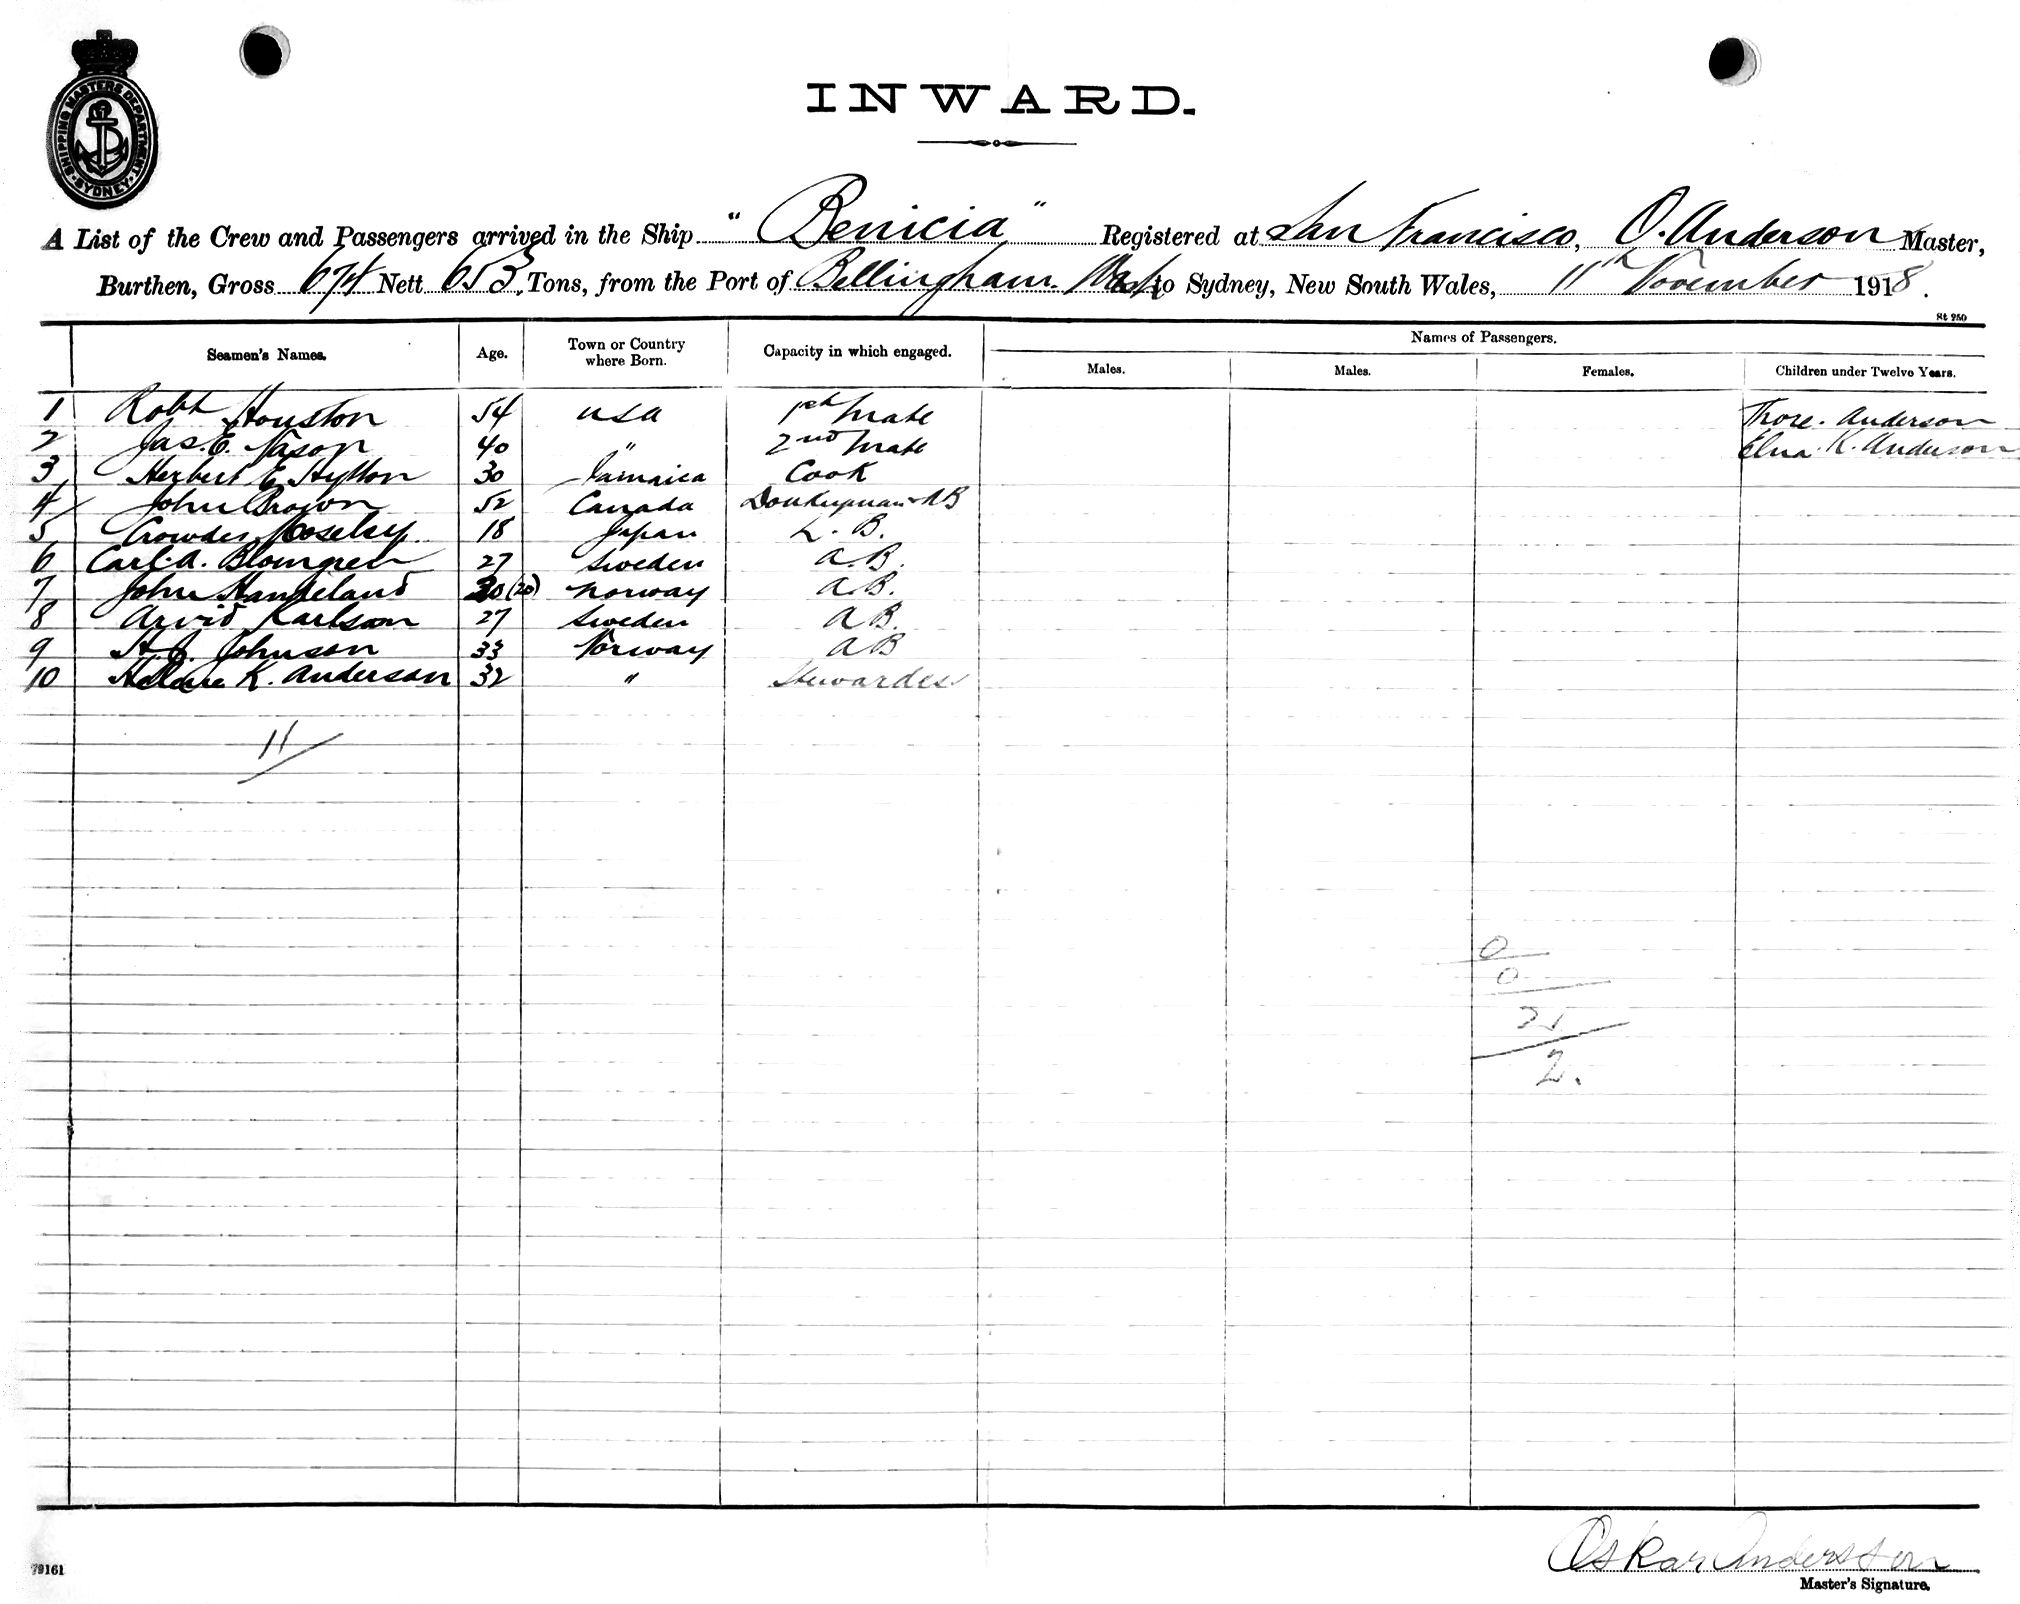 SHIPPING MASTERS DEPARTMENT
SYDNEY
INWARD.
A List of the Crew and Passengers arrived in the Ship "Benicia" Registered at San Francisco, O. Anderson Master,
Burthen, Gross 674 Nett 653 Tons, from the Port of Bellingham. Wash to Sydney, New South Wales, 11th November 1918.
St 250
Seamen's Names. Age. Town or Country where Born. Capacity in which engaged. Names of Passengers.
Males. Males. Females. Children under Twelve Years.
1 Robt Houston 54 USA 1st Mate Thore. Anderson
2 Jas. E. Nason 40 " 2nd Mate Elna K. Anderson
3 Herbert E Hylton 30 Jamaica Cook
4 John Brown 52 Canada Donkeyman & AB
5 Crowder Moseley 18 Japan L. B.
6 Carl A. Blomgren 27 Sweden A B.
7 John Handeland 30 (20) Norway A B.
8 Arvid Karlson 27 Sweden A B.
9 H. J. Johnson 33 Norway A B
10 K. Anderson 32 " Stewardess
11
0
0
2
2.
Oskar Andersson
79161
Master's Signature.